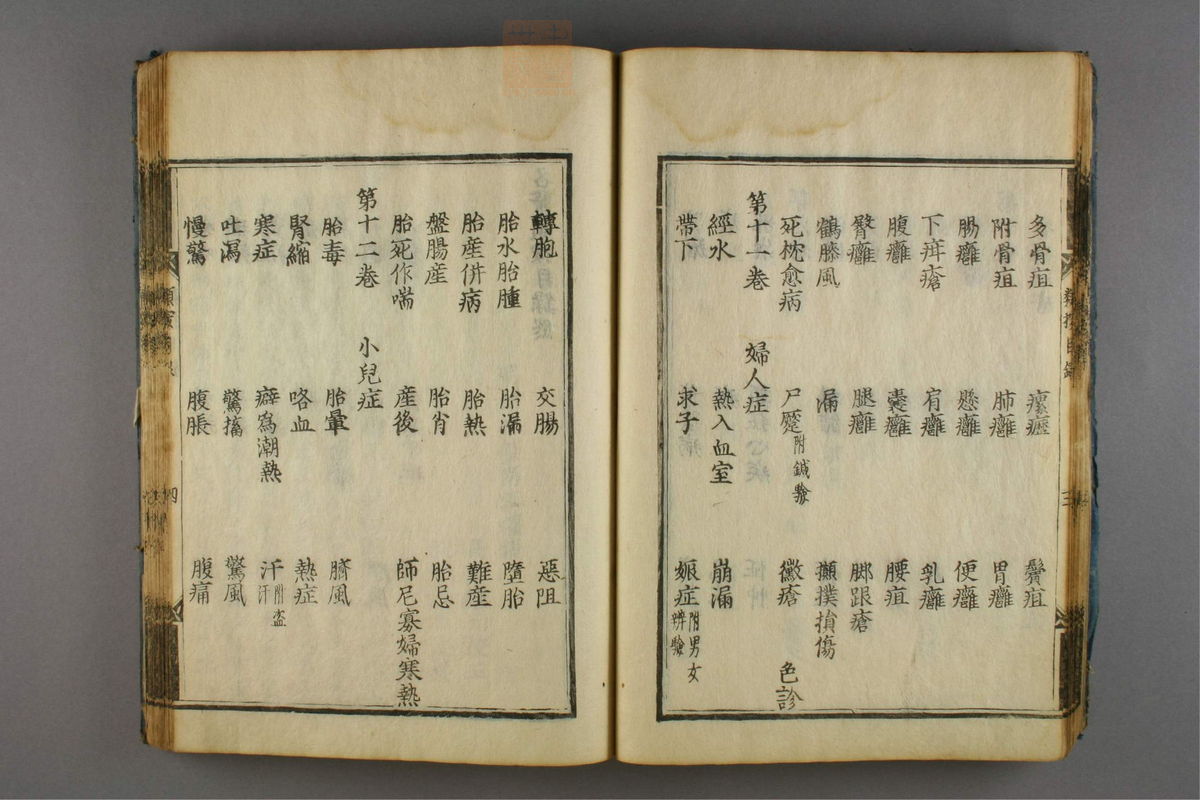 多骨疽 瘰癧 鬢疽
附骨疽 肺癰 胃癰
腸癰 懸癰 便癰
下疳瘡 肩癰 乳癰
腹癰 囊癰 腰疽
臀癰 腿癰 脚跟瘡
鶴膝風 漏 攧撲損傷
死枕愈病 尸蹷附鍼驗 黴瘡 色診
第十一卷 婦人症
經水 熱入血室 崩漏
帶下 求子 娠症附男女辨驗
轉胞 交腸 惡阻
胎水胎腫 胎漏 墮胎
胎産併病 胎熱 難産
盤腸産 胎肖 胎忌
胎死作喘 産後 師尼寡婦寒熱
第十二卷 小兒症
胎毒 胎暈 臍風
腎縮 咯血 熱症
寒症 癖為潮熱 汗附盜汗
吐瀉 驚搐 驚風
慢驚 腹脹 腹痛
三
四